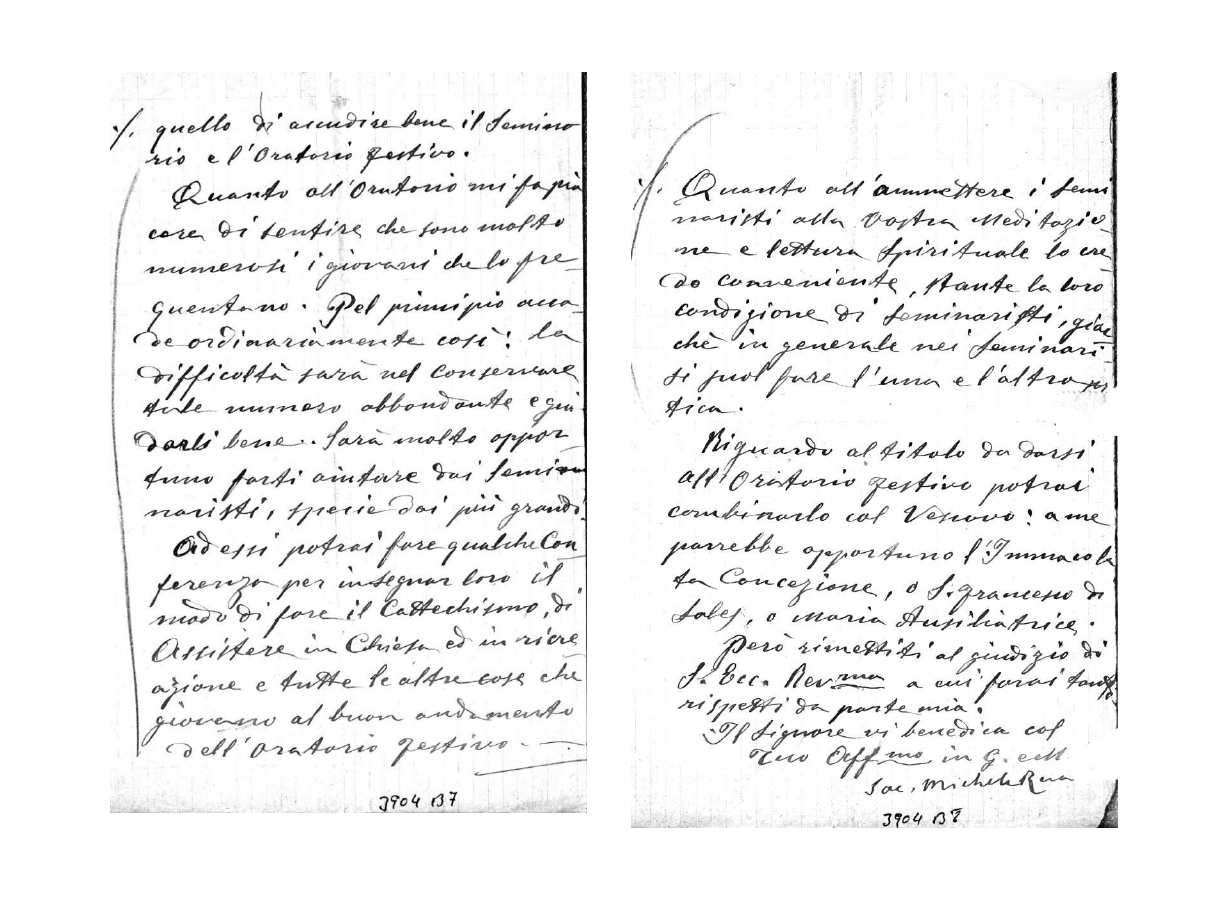 ./. quello di accudire bene il Semina
rio e l'Oratorio festivo.
Quanto all'Oratorio mi fa pia
cere di sentire che sono molto
numerosi i giovani che lo fre-
quentano. Pel principio acca-
de ordinariamente così: la
difficoltà sarà nel conservare
tale numero abbondante e gui-
darli bene.. Sarà molto oppor-
tuno farti aiutare dai Semi
naristi, specie dai più grandi.
Ad essi potrai fare qualche Con
ferenza per insegnar loro il
modo di fare il Cattechismo, di
Assistere in Chiesa ed in ricre
azione e tutte le altre cose che
giovano al buon andamento
dell'Oratorio festivo.
3904 B7
./. Quanto all'ammettere i Semi
naristi alla Vostra Meditazio-
ne e lettura Spirituale lo cre
do conveniente, stante la loro
condizione di Seminaristi, giac
chè in generale nei Seminari
si suol fare l'una e l'altra pra
tica.
Riguardo al titolo da darsi
all'Oratorio festivo potrai
combinarlo col Vescovo: a me
parrebbe opportuno l'Immacola
ta Concezione, o S. Francesco di
Sales, o Maria Ausiliatrice.
Però rimettiti al giudizio di
S. Ecc. Rev.ma a cui farai tanti
rispetti da parte mia.
Il Signore vi benedica col
Tuo Aff.mo in G. e M.
Sac. Michele Rua
3904 B8